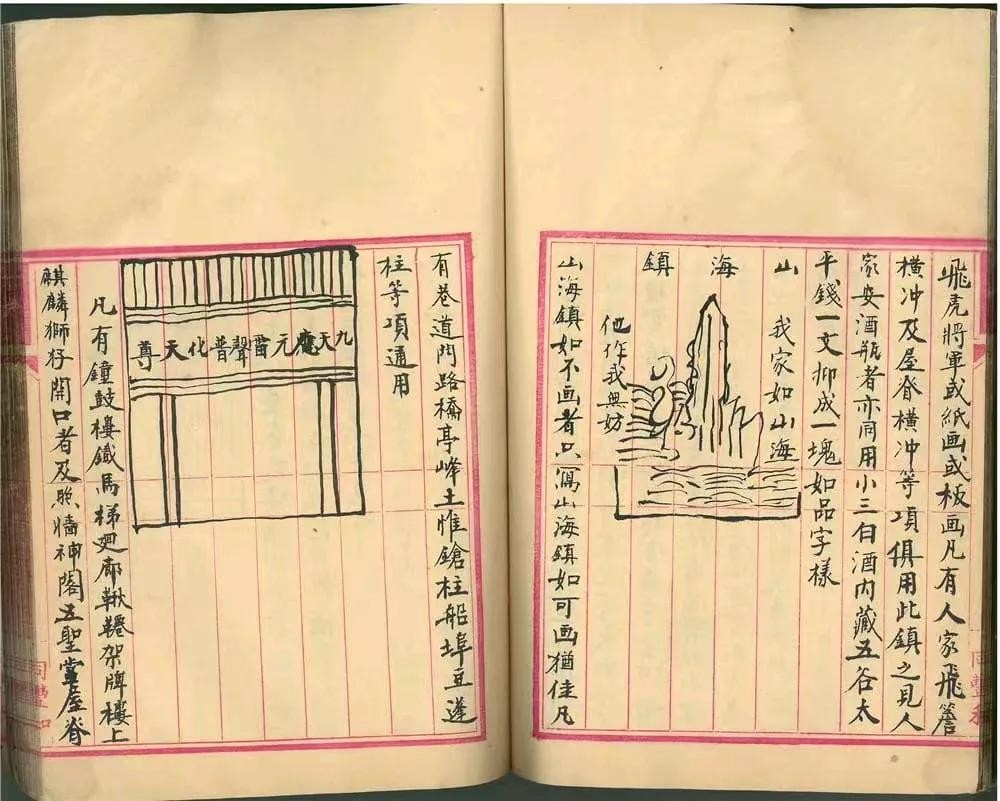 飛虎將軍或紙画或板画凡有人家飛簷
横冲及屋脊横冲等項俱用此鎮之見人
家安酒瓶者亦同用小三白酒内藏五谷太
平錢一文抑成一塊如品字樣
山海鎮
我家如山海
他作我無妨
山海鎮如不画者只寫山海鎮如可画猶佳凡
有巷道門路橋亭峰土惟鎗柱船埠豆蓬
柱等項通用
九天應元雷聲普化天尊
凡有鐘鼓樓鐵馬梯廻廊鞦韆架牌樓上
麒麟獅仔開口者及照牆神閣五聖堂屋脊